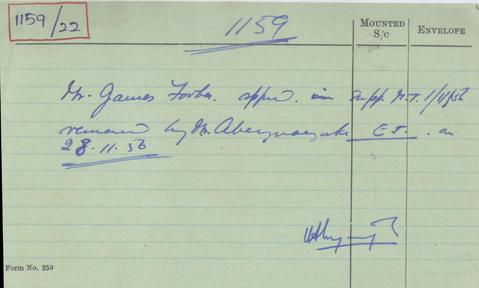 1159/22
1159
MOUNTED S/C
ENVELOPE
Mr. James Forbes. appd. in Supp. N.T. 1/4/56
removed by Mr. E.T. on
28.11.56
Form No. 259